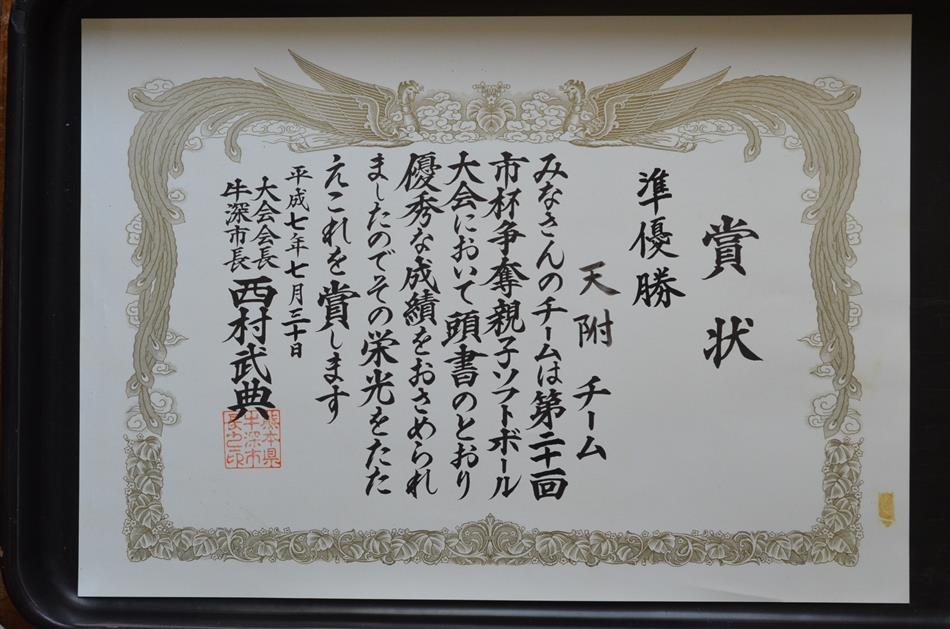 賞状
準優勝
天附 チーム
みなさんのチームは第二十回
市杯争奪親子ソフトボール
大会において頭書のとおり
優秀な成績をおさめられ
ましたのでその栄光をたた
えこれを賞します
平成七年七月三十日
大会会長
牛深市長
西村武典
熊本県
牛深市
長之印